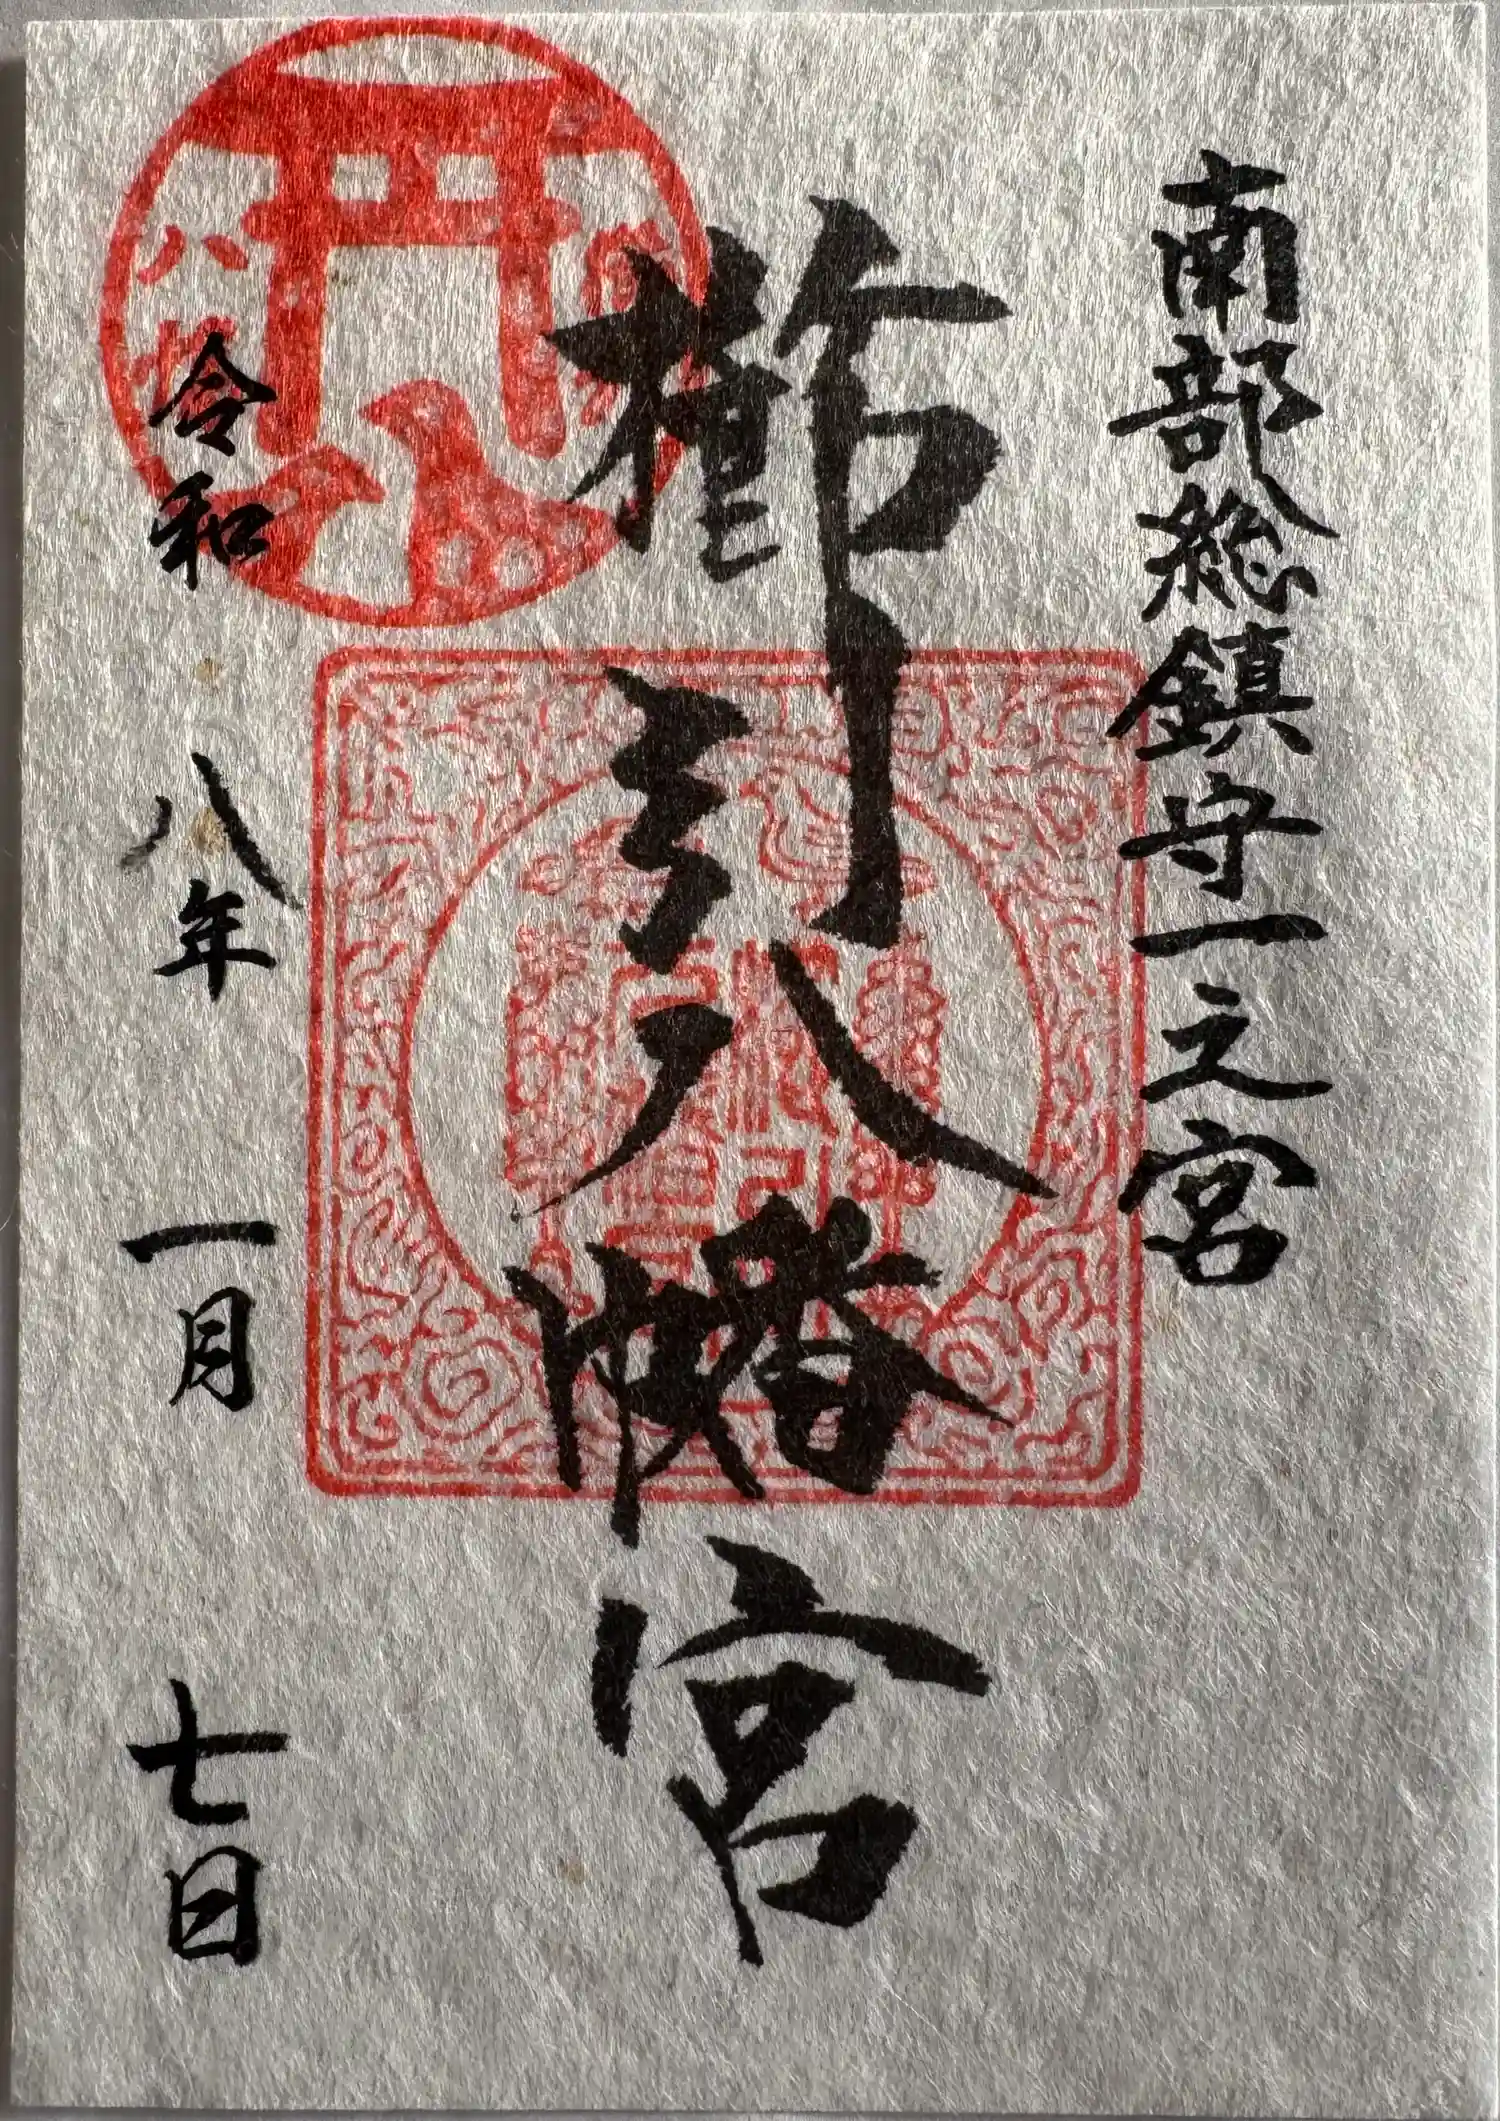 南部総鎮守一之宮
櫛引八幡宮
令和八年一月七日